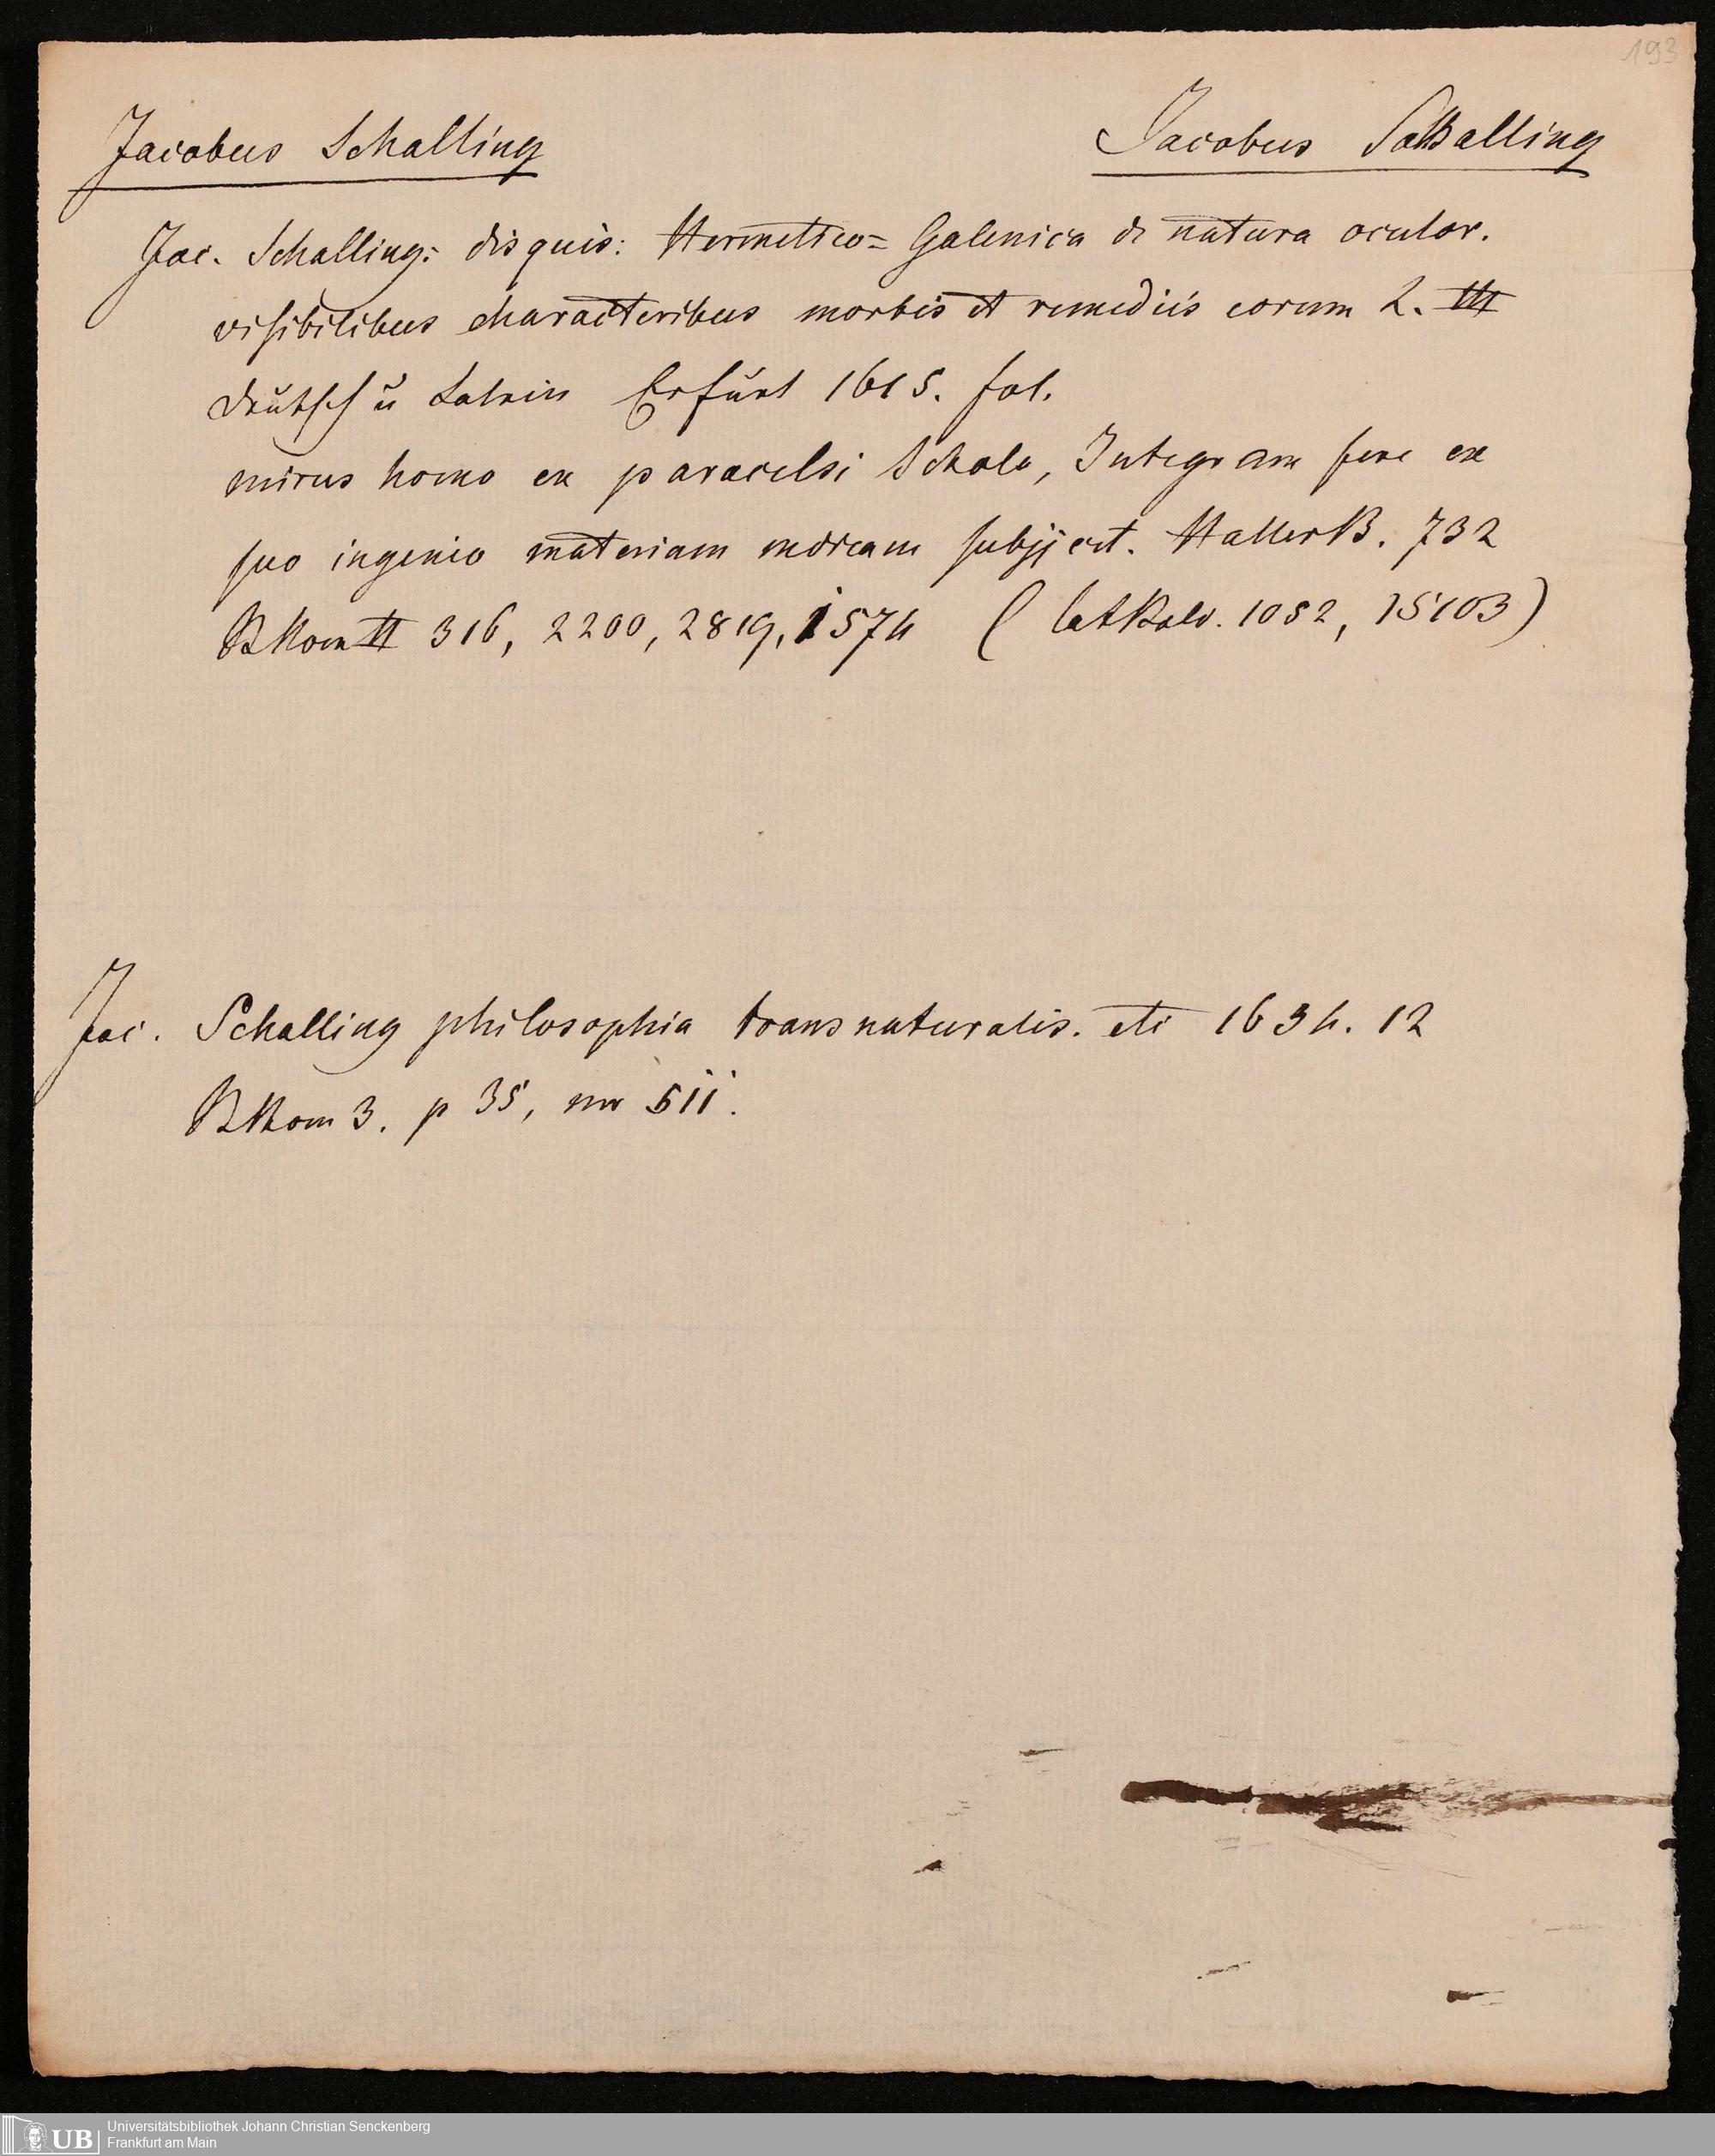 193
Jacobus Schalling
Jacobus Schalling
Jac. Schalling: disquis: Hermetico= Galenica de natura oculor.
visibilibus characteribus morbis et remediis eorum L. III
deutsch u Latein Erfurt 1615. fol.
mirus homo ex paracelsi schola, Integram fere ex
suo ingenio materiam medicam subjicit. Haller B. 732
316, 2200, 2819, 1574 ( 1052, 15103)
Jac. Schalling philosophia transnaturalis. etc 1634. 12
3. p 35, nro 511.
UB
Universitätsbibliothek Johann Christian Senckenberg
Frankfurt am Main